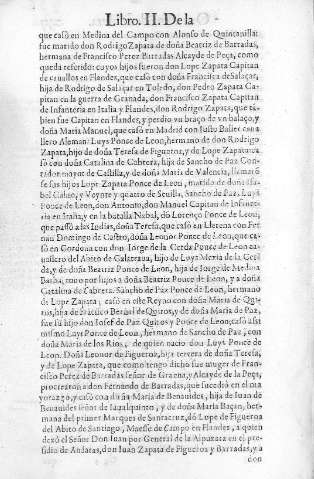 Libro. II. De la
que casó en Medina del Campo con Alonso de Quintanilla:
fue marido don Rodrigo Zapata de doña Beatriz de Barradas,
hermana de Francisco Perez Barradas Alcayde de Peça, como
queda referido: cuyos hijos fueron don Lope Zapata Capitan
de cauallos en Flandes, que casó con doña Francisca de Salaçar,
hija de Rodrigo de Salaçar en Toledo, don Pedro Zapata Ca-
pitan en la guerra de Granada, don Francisco Zapata Capitan
de Infanteria en Italia y Flandes, don Rodrigo Zapata, que ta-
bien fue Capitan en Flandes, y perdio vn braço de vn balaço, y
doña Maria Manuel, que casó en Madrid con Iusto caua-
llero Aleman. Luys Ponce de Leon, hermano de don Rodrigo
Zapata, hijo de doña Teresa de Figueroa, y de Lope Zapata ca-
só con doña Catalina de Cabrera, hija de Sancho de Paz Con-
tador mayor de Castilla, y de doña Maria de Valencia, llamaro-
se sus hijos Lope Zapata Ponce de Leon, marido de doña Isa-
bel y Veynte y quatro de Seuilla, Sancho de Paz, Luys
Ponce de Leon, don Antonio, don Manuel Capitan de Infante-
ria en Italia, y en la batalla Nabal, dō Lorenço Ponce de Leon,
que passò a las Indias, doña Teresa, que casó en Llerena con Fer
nan Domingo de Castro, doña Leonor Ponce de Leon, que ca-
só en Gordoua con don Iorge de la Cerda Ponce de Leon ca-
uallero del Abito de Calatraua, hijo de Luys Mexia de la Cer-
da, y de doña Beatriz Ponce de Leon, hija de Iorge de Medina
Barba, tuuo por hijos a doña Beatriz Ponce de Leon, y a doña
Catalina de Cabrera. Sancho de Paz Ponce de Leon, hermano
de Lope Zapata, casó en este Reyno con doña Maria de Qui-
ros, hija de Francisco Bernal de Quiros, y de doña Maria de Paz,
fue su hijo don Iosef de Paz Quiros y Ponce de Leon, casó assi
mismo Luys Ponce de Leon, hermano de Sancho de Paz, con
doña Maria de los Rios, de quien nacio don Luys Ponce de
Leon. Doña Leonor de Figueroa, hija tercera de doña Teresa,
y de Lope Zapata, que como tengo dicho fue muger de Fran-
cisco Perez de Barradas señor de Graena, y Alcayde de la Peça,
procrearon a don Fernando de Barradas, que sucedió en el ma
yorazgo, y casó con doña Maria de Benauides, hija de Iuan de
Benauides señor de Iaualquinto, y de doña Maria Baçan, her-
mana del primer Marques de Santacruz, dō Lope de Figueroa
del Abito de Santiago, Maesse de Campo en Flandes, a quien
dexó el Señor Don Iuan por General de la Alpuxarra en el pre-
sidio de Andarax, don Iuan Zapata de Figueroa y Barradas, y a
don